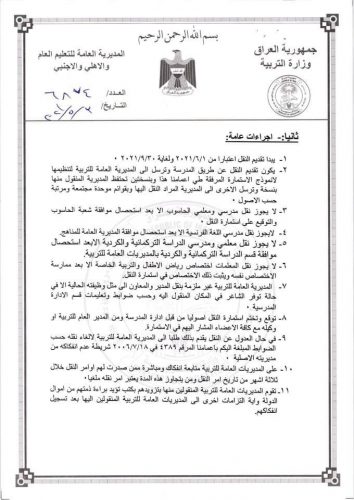 بسم الله الرحمن الرحيم
جمهورية العراق
وزارة التربية
المديرية العامة للتعليم العام
والاهلي والاجنبي
العدد/
التاريخ/
ثانيا:- اجراءات عامة:
١- يبدا تقديم النقل اعتبارا من ٢٠٢١/٦/١ ولغاية ٢٠٢١/٩/٣٠
٢- يكون تقديم النقل عن طريق المدرسة وترسل الى المديرية العامة للتربية لتنظيمها
لانموذج الاستمارة المرفقة طي اعمامنا هذا وبنسختين تحتفظ المديرية المنقول منها
بنسخة وترسل الاخرى الى المديرية المراد النقل اليها وبقوائم موحدة مجتمعة ومرتبة
حسب الاصول
٣- لا يجوز نقل مدرسي ومعلمي الحاسوب الا بعد استحصال موافقة شعبة الحاسوب
والتوقيع على استمارة النقل.
٤- لايجوز نقل مدرسي اللغة الفرنسية الا بعد استحصال موافقة المديرية العامة للمناهج.
٥- لا يجوز نقل معلمي ومدرسي الدراسة التركمانية والكردية الابعد استحصال
موافقة قسم الدراسة التركمانية والكردية بالمديريات العامة للتربية.
٦- لا يجوز نقل المعلمات اختصاص رياض الاطفال والتربية الخاصة الا بعد ممارسة
الاختصاص نفسه ويثبت ذلك التخصص في استمارة النقل.
٧- المديرية العامة للتربية غير ملزمة بنقل المدير والمعاون الى مثل وظيفته الحالية الا في
حالة توفر الشاغر في المكان المنقول اليه وحسب ضوابط وتعليمات قسم الادارة
المدرسية
٨- توقع وتختم استمارة النقل اصوليا من قبل ادارة المدرسة ومن المدير العام للتربية او
وكيله مع كافة الاعضاء المشار اليهم في الاستمارة.
٩- في حال العدول عن النقل يقدم بذلك طلبا الى المديرية العامة للتربية لالغاء نقله حسب
الضوابط المبلغة اليكم باعمامنا المرقم ٤٣٨٩ في ٢٠٠٦/٧/١٨ شريطة عدم انفكاكه من
مديريته الاصلية
١٠- على المديريات العامة للتربية متابعة انفكاك ومباشرة ممن صدرت لهم اوامر النقل خلال
ثلاثة اشهر من تاريخ امر النقل ومن يتجاوز هذه المدة يعتبر امر نقله ملغيا.
١١- تقوم المديريات العامة للتربية المنقولين منها بتزويدهم بكتب تؤيد براءة ذمتهم من اموال
الدولة واية التزامات اخرى الى المديريات العامة للتربية المنقولين اليها بعد تسجيل
انفكاكهم.